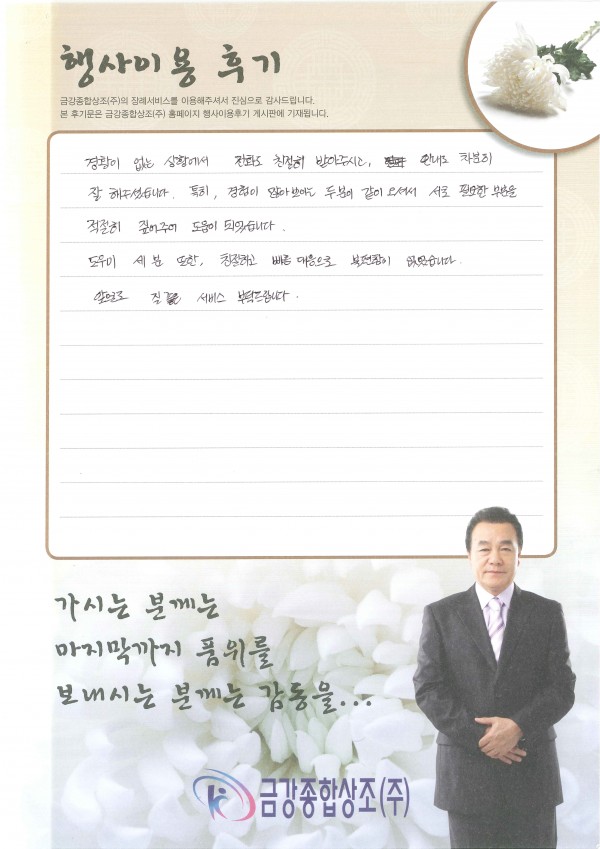 행사이용 후기
금강종합상조(주)의 장례서비스를 이용해주셔서 진심으로 감사드립니다.
본 후기문은 금강종합상조(주) 홈페이지 행사이용후기 게시판에 기재됩니다.
경황이 없는 상황에서 전화도 친절히 받아주시고, 안내도 차분히
잘 해주셨습니다. 특히, 경험이 많아보이는 두분이 같이 오셔서 서로 필요한 부분을
적절히 짚어주어 도움이 되었습니다.
도우미 세 분 또한, 친절하고 빠른 대응으로 불편함이 없었습니다.
앞으로 질 좋은 서비스 부탁드립니다.
가시는 분께는
마지막까지 품위를
보내시는 분께는 감동을...
금강종합상조(주)